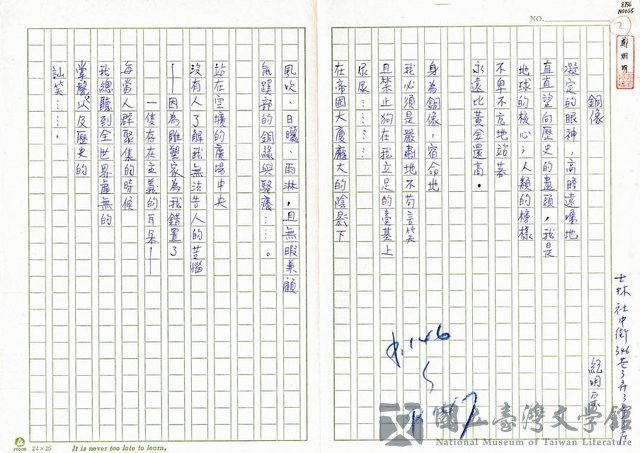 NO.
2
銅像
凝定的眼神,高瞻遠矚地
直直望向歷史的盡頭,我是
地球的核心;人類的榜樣
不卑不亢地站著
永遠比黃金還高。
身為銅像,宿命地
我必須是嚴肅地不苟言笑
且禁止狗在我立足的臺基上
尿尿……
在帝國大廈龐大的陰影下
風吹、日曬、雨淋,且無暇兼顧
無蹤部的銅綠與騷癢……。
站在空曠的廣場中央
沒有人了解我無法告人的苦惱
——因為雕塑家為我錯置了
一隻存在主義的耳朵——
每當人群聚集的時候
我總聽到全世界虛無的
掌聲以及歷史的
訕笑……。
士林社中街346巷3弄3
P.146
24×25
It is never too late to learn.
國立臺灣文學館
National Museum of Taiwan Literature